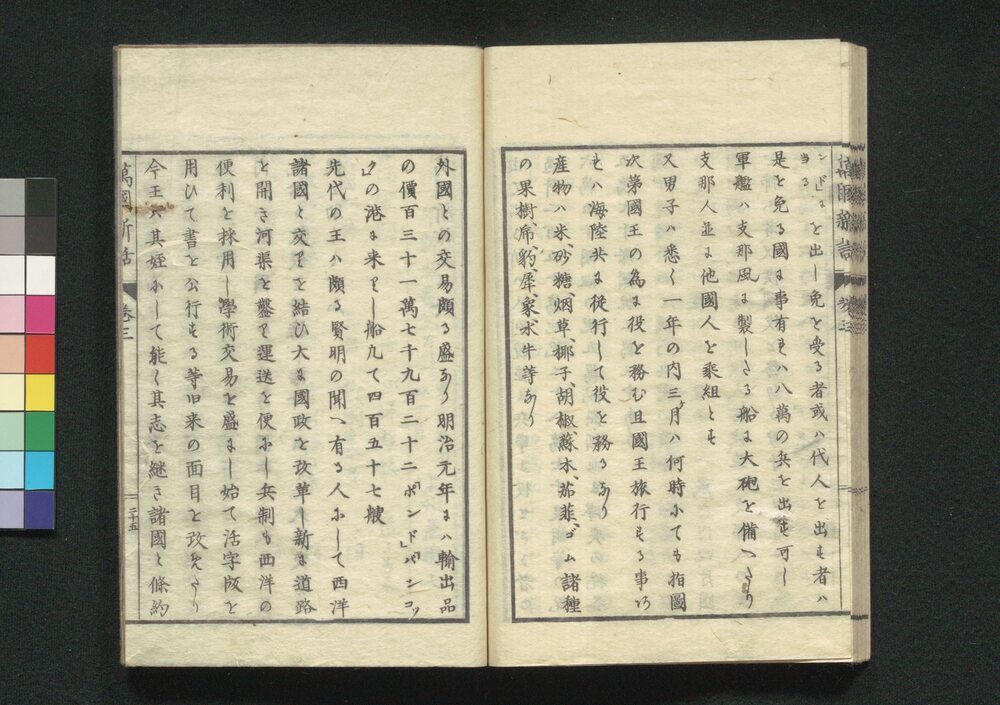 ンド」ヨを出し免を受る者或ハ代人を出も者ハ
是を免る國ニ事有もハ八萬の兵を出も可し
軍艦ハ支那風ニ製しさる船ニ大砲を備へさり
支那人並ニ他國人を乘組とも
又男子ハ悉く一年の内三月ハ何時にても指圖
次第國王の為ニ役を務む且國王旅行もる事
もハ海陸共ニ従行して役を務るあり
産物ハ米、砂糖烟草、椰子、胡椒蘇木、茄菲、ゴム諸種
の果樹、席、豹、犀、象、水牛等あり
外國との交易頗る盛あり明治元年ニハ輸出品
の價百三十一萬七千九百二十二「ポンド」「バンコツ
ク」の港ニ来りし船九て四百五十七艘
先代の王ハ頗る賢明の聞へ有る人にして西洋
諸國と交りを結ひ大ニ國政を改革し新ニ道路
を開き河渠を鑿り運送を便にし兵制も西洋の
便利を採用し學術交易を盛ニし始て活字版を
用ひて書を公行もる等旧来の面目を改めさり
今王ハ其姪にして能く其志を継き諸國と條約
萬國新話
卷三
三十五